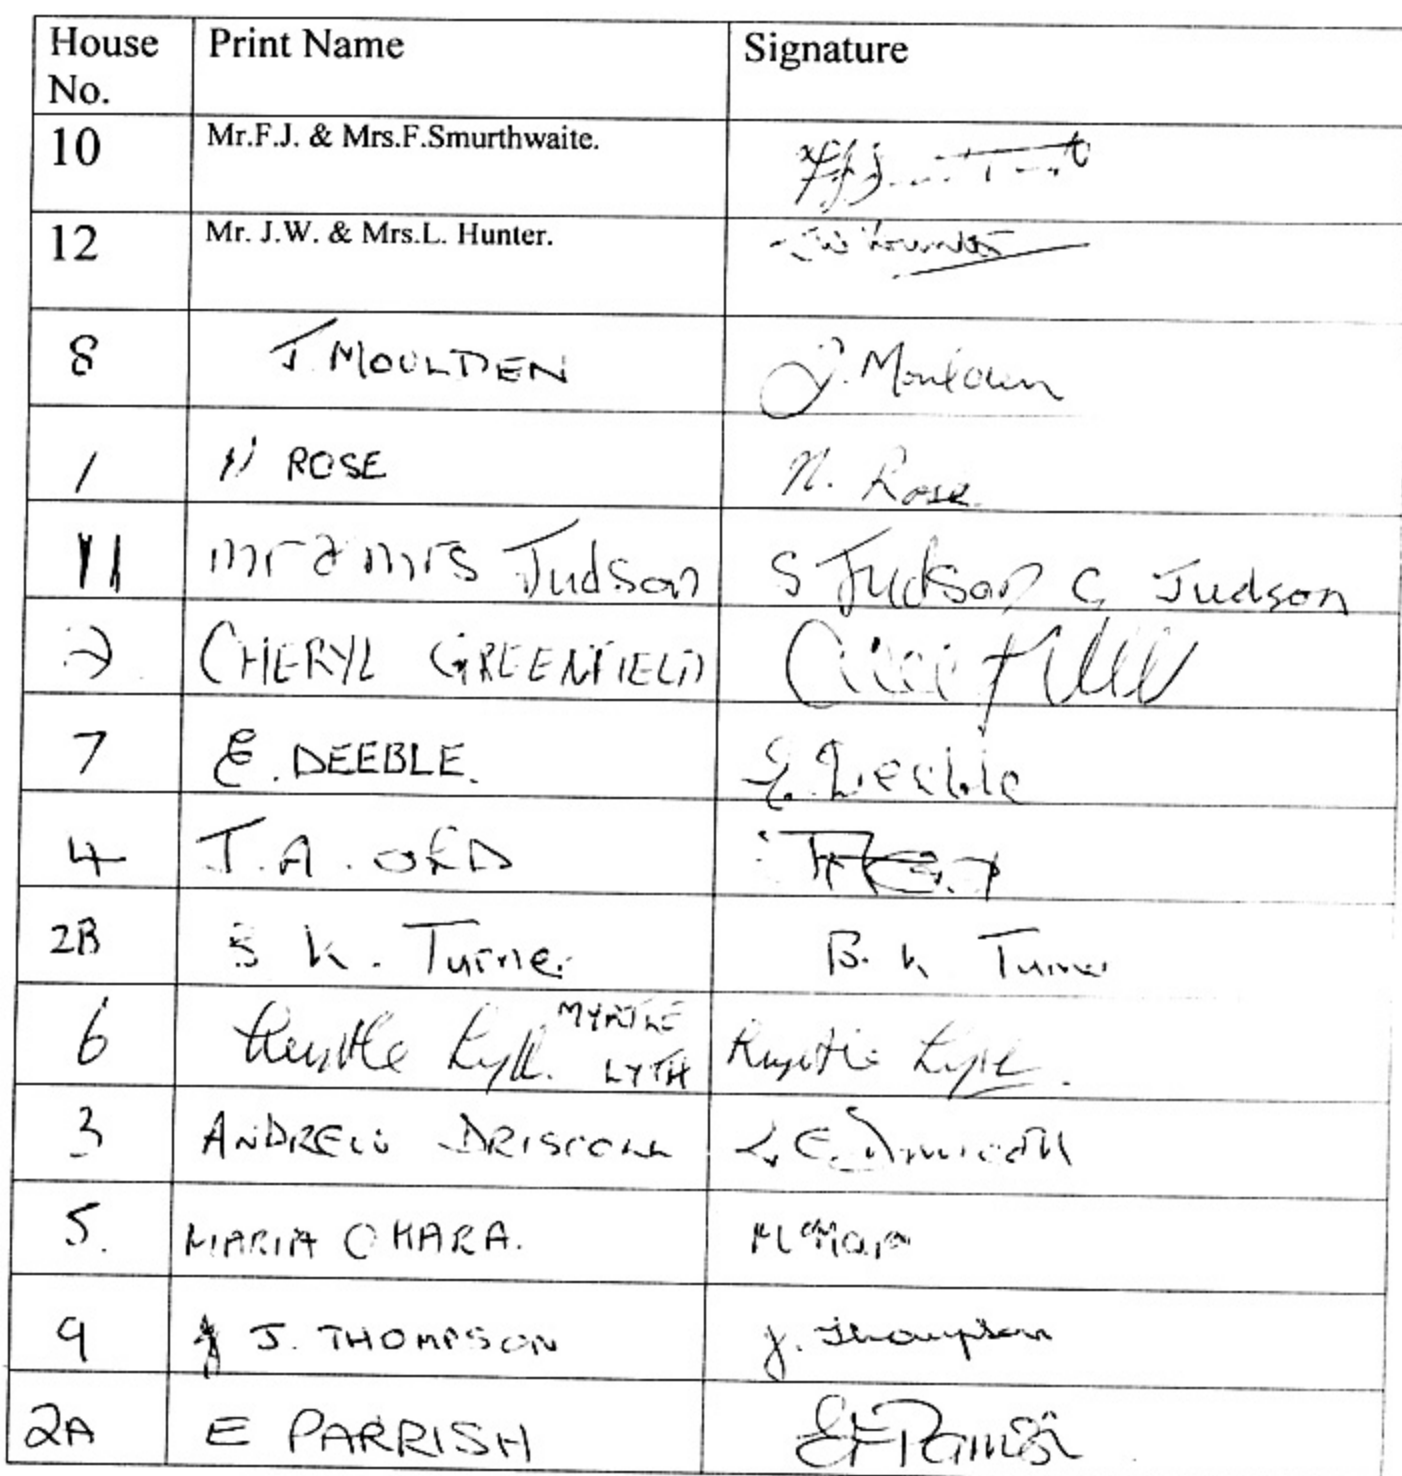 House No. Print Name Signature
10 Mr.F.J. & Mrs.F.Smurthwaite.
12 Mr. J.W. & Mrs.L. Hunter. J W Hunter
8 J. MOULDEN J. Moulden
1 N ROSE N. Rose.
11 Mr & Mrs Judson S Judson C Judson
2 CHERYL GREENFIELD
7 E. DEEBLE. E. Deeble
4 J.A. ORD
2B B K. Turner B. K Turner
6 Myrtle Lyth. MYRTLE LYTH Myrtle Lyth.
3 ANDREW DRISCOLL
5. MARIA O HARA. M O'Hara
9 J. THOMPSON J. Thompson
2A E PARRISH E Parrish